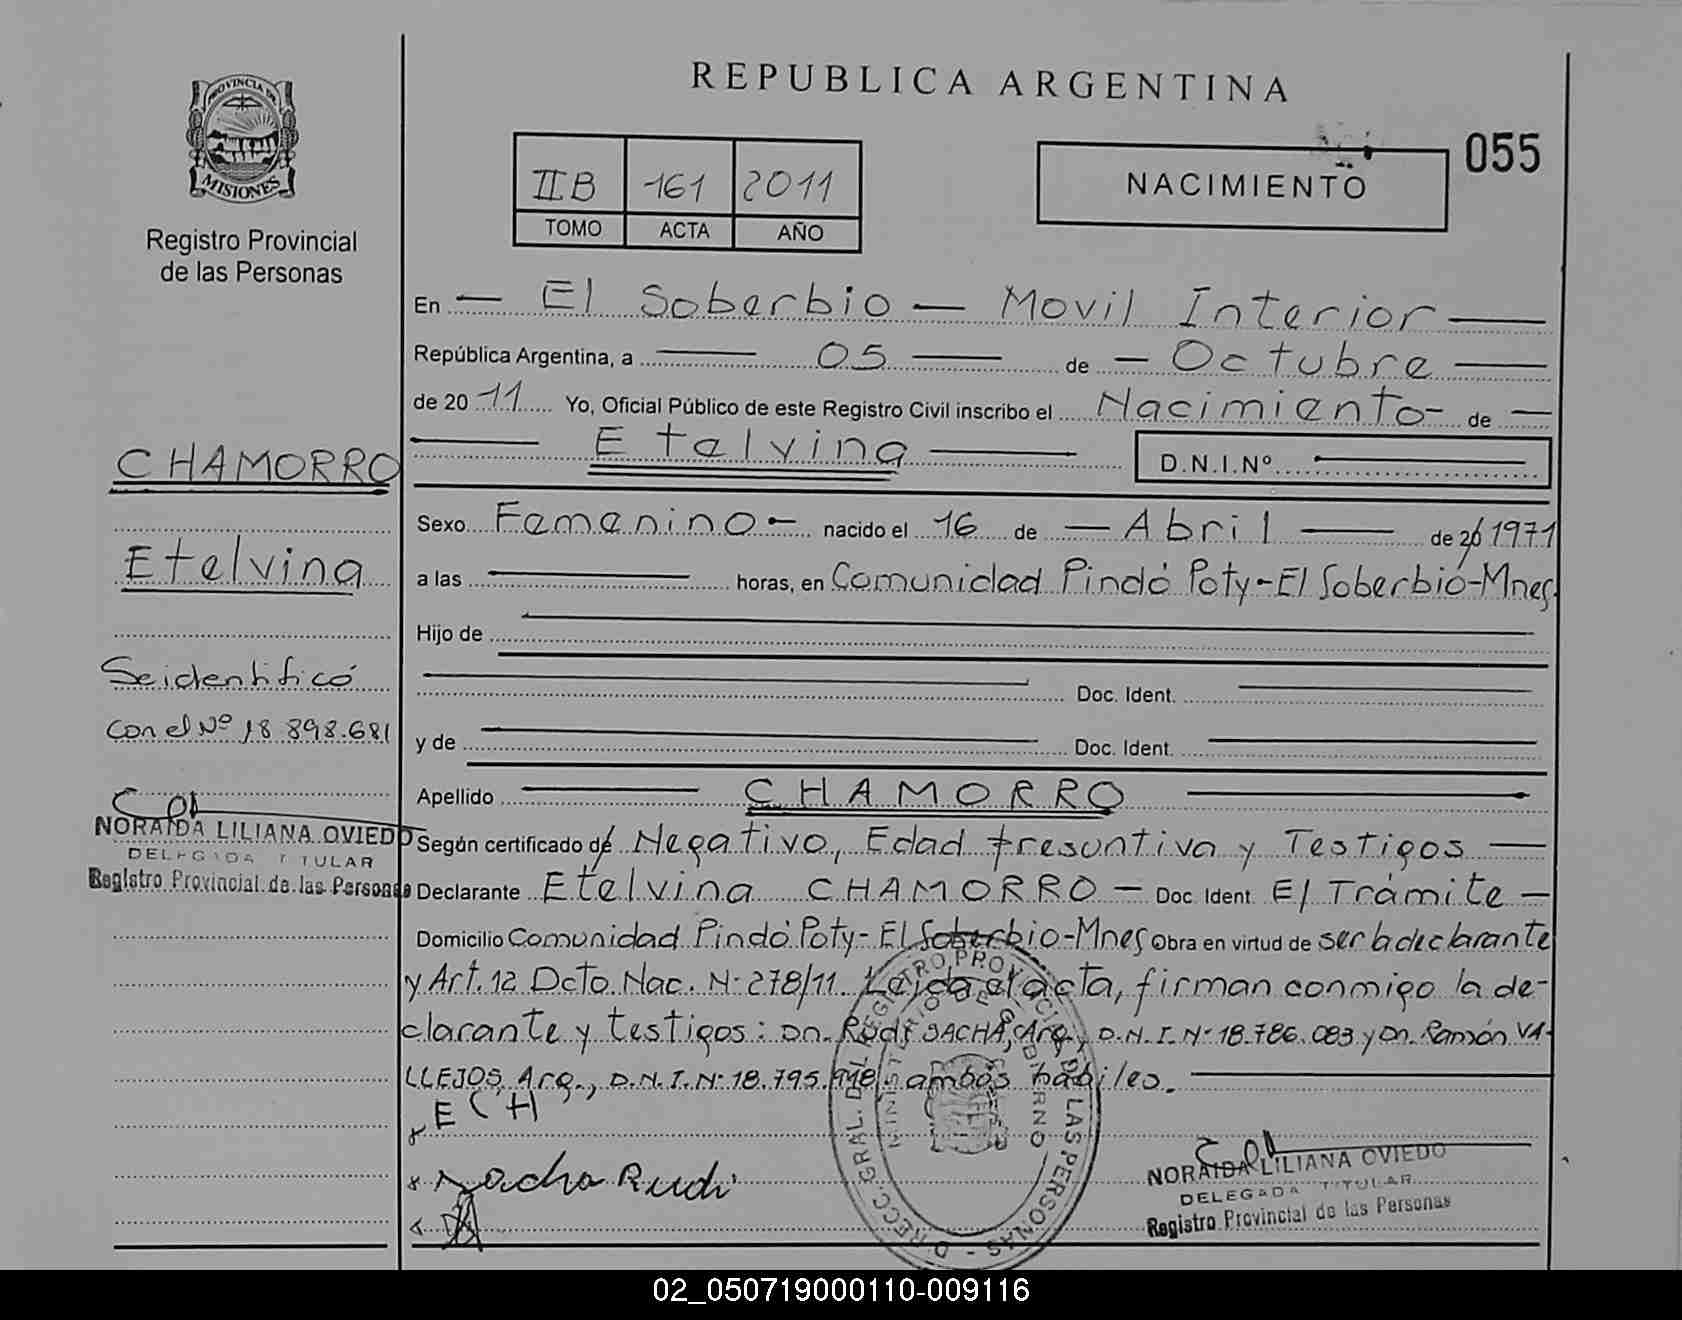 PROVINCIA DE
MISIONES
Registro Provincial
de las Personas
CHAMORRO
Etelvina
Se identificó
con el Nº 18.898.681
NORAIDA LILIANA OVIEDO
DELEGADA TITULAR
Registro Provincial de las Personas
REPUBLICA ARGENTINA
055
II B 161 2011
TOMO ACTA AÑO
NACIMIENTO
En — El Soberbio — Movil Interior —
República Argentina, a — 05 — de — Octubre —
de 20 11 Yo, Oficial Público de este Registro Civil inscribo el Nacimiento - de —
— Etelvina — D.N.I.Nº —
Sexo Femenino - nacido el 16 de — Abril — de 20 1971
a las — horas, en Comunidad Pindó Poty - El Soberbio - Mnes.
Hijo de —
— Doc. Ident. —
y de — Doc. Ident. —
Apellido — CHAMORRO —
Según certificado de Negativo, Edad Presuntiva y Testigos —
Declarante Etelvina CHAMORRO — Doc. Ident. E/ Trámite —
Domicilio Comunidad Pindó Poty - El Soberbio - Mnes Obra en virtud de ser la declarante
y Art. 12 Dcto. Nac. Nº 278/11. Leida el acta, firman conmigo la de-
clarante y testigos: Dn. Rudi SACHA, Arg., D.N.I. Nº 18.786.083 y Dn. Ramón VA-
LLEJOS, Arg., D.N.I. Nº 18.795.918 - ambos hábiles. —
x E C H
x Sacha Rudi
x
DIRECC. GRAL. DEL REGISTRO PROVINCIAL DE LAS PERSONAS -
MINISTERIO DE GOBIERNO
NORAIDA LILIANA OVIEDO
DELEGADA TITULAR
Registro Provincial de las Personas
02_050719000110-009116